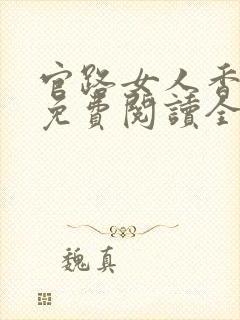 官路女人香
免費閱讀全
魏真